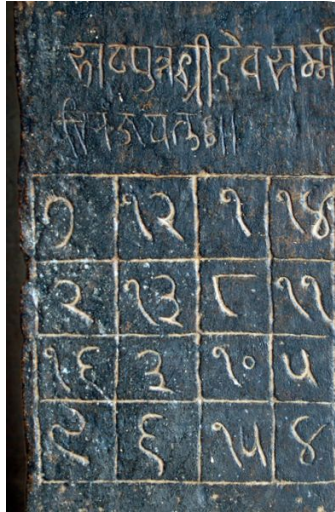 पुत्रश्रीदेवसर्म्म
७ १२ १ १४
२ १३ ८ ११
१६ ३ १० ५
९ ६ १५ ४